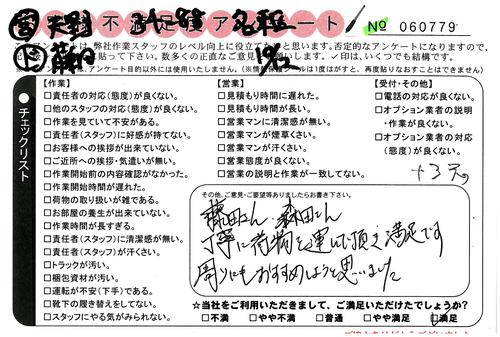 不満足度アンケート
№ 060779
は、弊社作業スタッフのレベル向上に役立てて
と思います。否定的なアンケートになりますので、
貼って下さい。数多くの正直なご意見
いします。✓印は、いくつでも結構です。
は、アンケート目的以外には使用いたしません。
●チェックリスト
【作業】
□責任者の対応(態度)が良くない。
□他のスタッフの対応(態度)が良くない。
□作業を見ていて不安がある。
□責任者(スタッフ)に好感が持てない。
□お客様への挨拶が出来ていない。
□ご近所への挨拶・気遣いが無い。
□作業開始前の内容確認がなかった。
□作業開始時間が遅れた。
□荷物の取り扱いが雑である。
□お部屋の養生が出来ていない。
□作業時間が長すぎる。
□責任者(スタッフ)に清潔感が無い。
□責任者(スタッフ)が汗くさい。
□トラックが汚い。
□梱包資材が汚い。
□運転が不安(下手)である。
□靴下の履き替えをしてない。
□スタッフにやる気がみられない。
【営業】
□見積もり時間に遅れた。
□見積もり時間が長い。
□営業マンに清潔感が無い。
□営業マンが煙草くさい。
□営業マンが汗くさい。
□営業態度が良くない。
□営業の説明と作業が一致してない。
【受付・その他】
□電話の対応が良くない。
□オプション業者の説明
・作業が良くない。
□オプション業者の対応
(態度)が良くない。
その他、ご意見・ご要望等ありましたらお書き下さい。
藤田さん 森田さん
丁寧に荷物を運んで頂き満足です
周りにもおすすめしようと思いました
☆当社をご利用いただきまして、ご満足いただけたでしょうか?
□不満 □やや不満 □普通 □やや満足 □満足